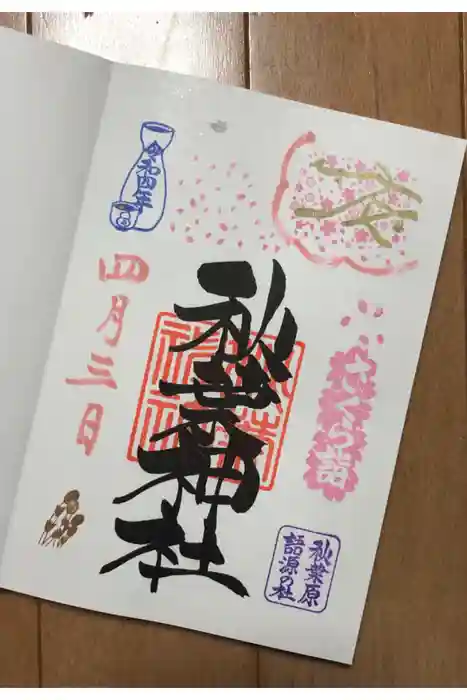 桜
さくら詣
秋葉原
語源の社
秋葉神社
令和四年
四月三日